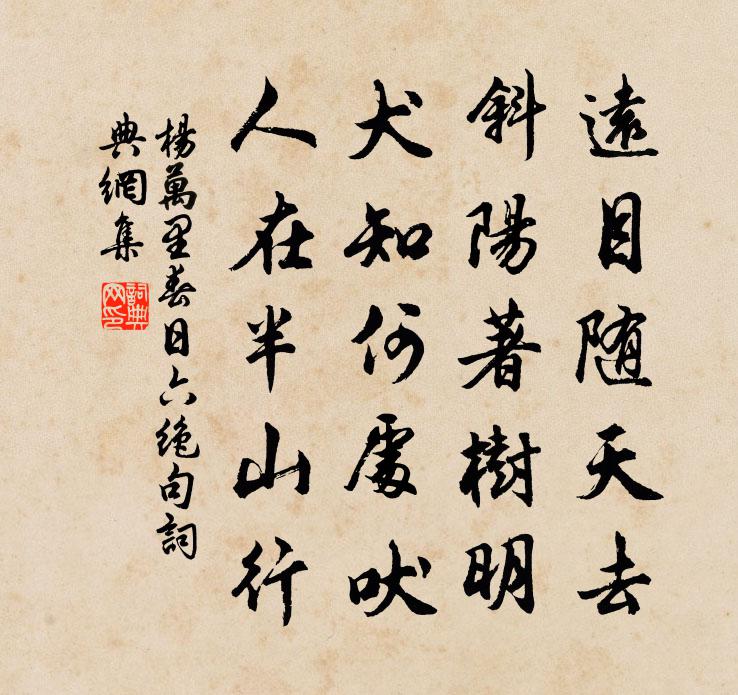 遠目随天去
斜陽著樹明
犬知何處吠
人在半山行
楊萬里春日六絶句詞
典網集
詞典网印